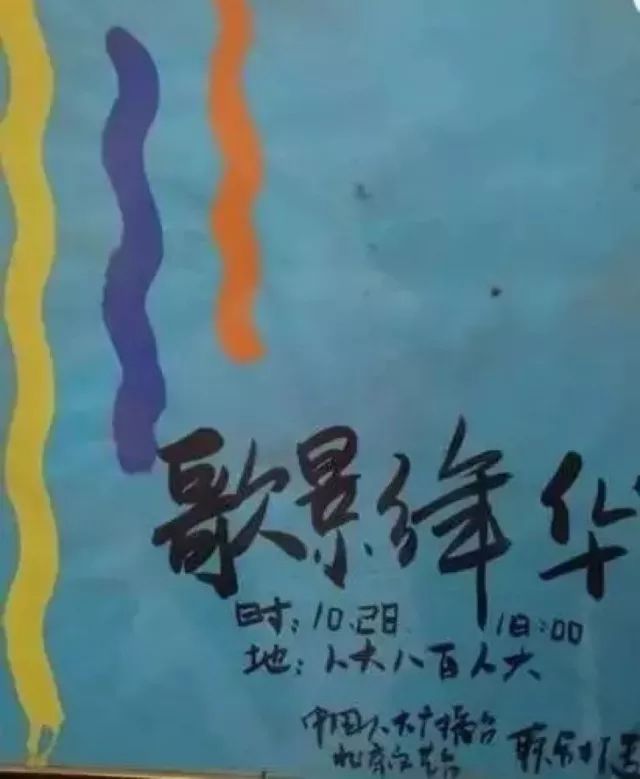 歌景年华
时：10.28 18:00
地：人大八百人大
中国人大广播台
北京文艺台
联合